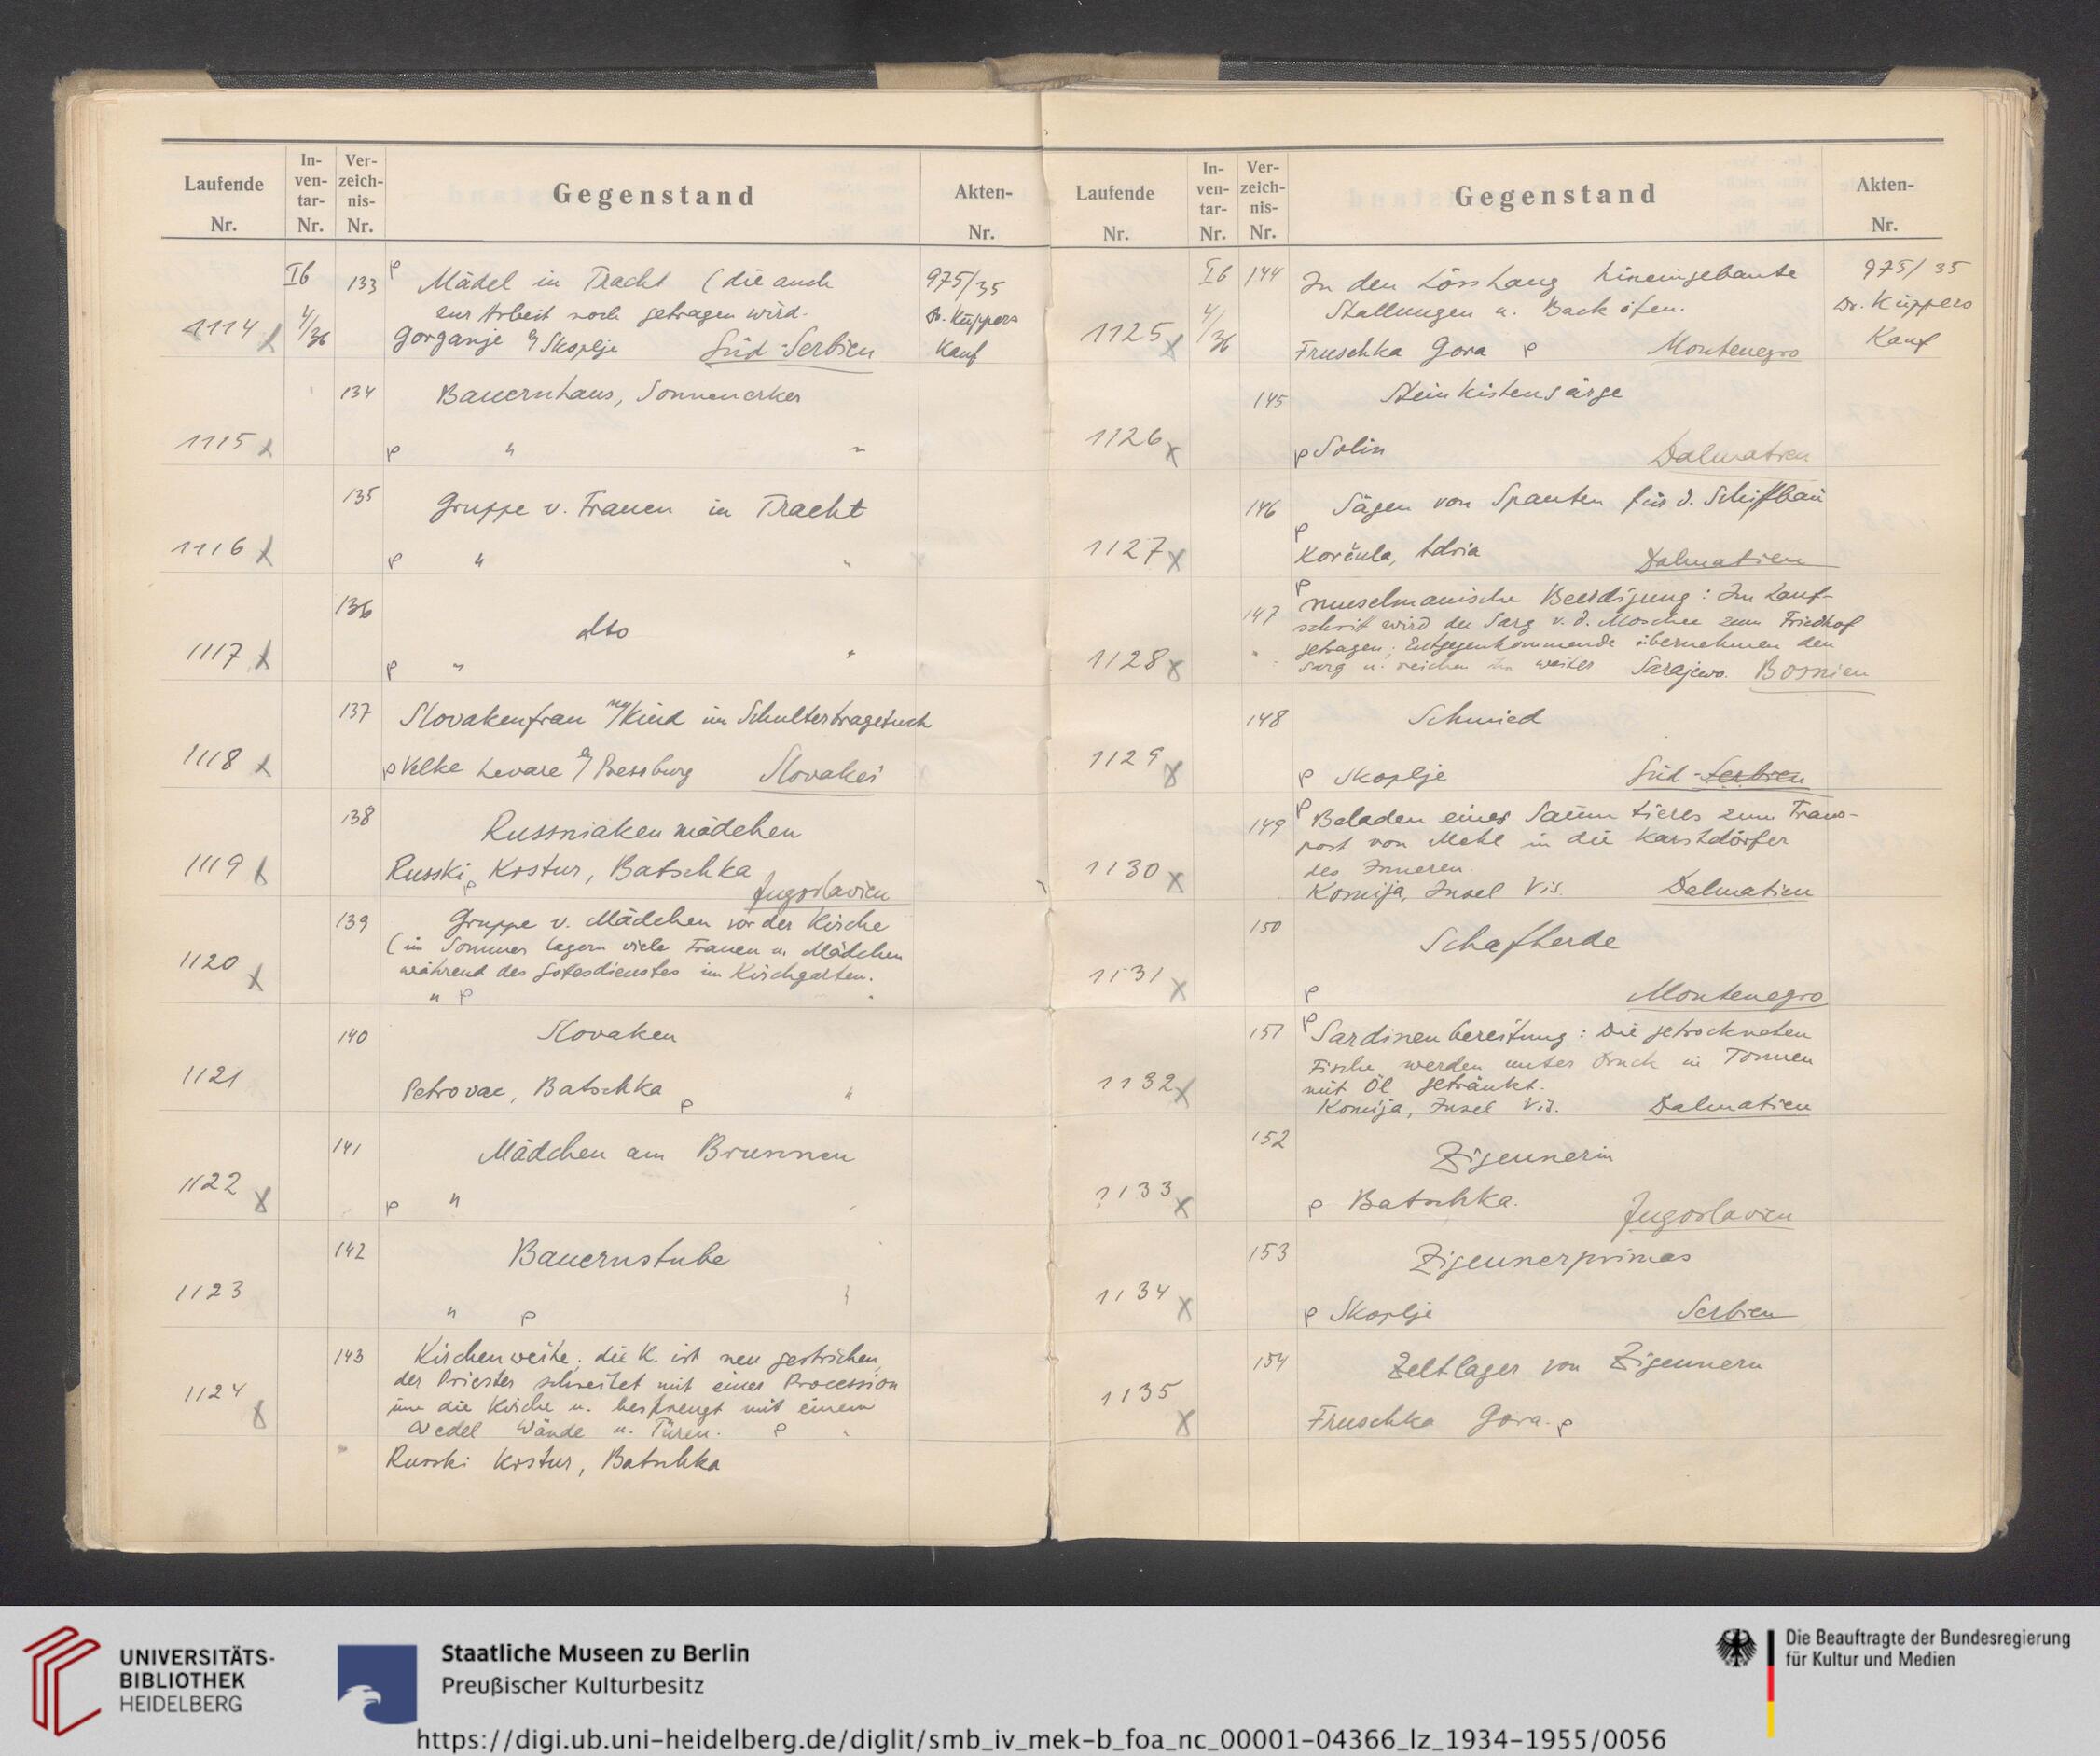 Laufende Nr. In-ven-tar-Nr. Ver-zeich-nis-Nr. Gegenstand Akten-Nr.
Ib 133 P Mädel in Tracht (die auch 975/35
zur Arbeit noch getragen wird. Dr. Küppers
1114 x 4/36 Gorganje b/Skoplje Süd-Serbien Kauf
134 Bauernhaus, Sonnenerker
1115 x P " "
135 Gruppe v. Frauen in Tracht
1116 x P " "
136 dto
1117 x P " "
137 Slovakenfrau m/Kind im Schultertragetuch
1118 x P Velke Levare b/Pressburg Slovakei
138 Russniakenmädchen
1119 x Russki Kostur, Batschka
P Jugoslavien
139 Gruppe v. Mädchen vor der Kirche
(im Sommer lagern viele Frauen u. Mädchen
1120 x während des Gotesdienstes im Kirchgarten.
" P "
140 Slovaken
1121 Petrovac, Batschka P "
141 Mädchen am Brunnen
1122 x P " "
142 Bauernstube
1123 " P "
143 Kirchenweihe; die K. ist neu gestrichen,
der Priester schreitet mit einer Procession
1124 x um die Kirche u. besprengt mit einem
Wedel Wände u. Türen. P "
Russki Kostur, Batschka
Laufende Nr. In-ven-tar-Nr. Ver-zeich-nis-Nr. Gegenstand Akten-Nr.
Ib 144 In den Lösshang hineingebaute 975/35
Stallungen u. Backöfen. Dr. Küppers
1125 x 4/36 Fruschka Gora P Montenegro Kauf
145 Steinkistensärge
1126 x P Solin Dalmatien
146 Sägen von Spanten für d. Schiffbau
P
1127 x Korčula, Adria Dalmatien
P
147 muselmanische Beerdigung: Im Lauf-
schrit wird der Sarg v. d. Moschee zum Friedhof
getragen; Entgegenkommende übernehmen den
1128 x Sarg u. reichen ihn weiter Sarajewo. Bosnien
148 Schmied
1129 x P Skoplje Süd-Serbien
149 P Beladen eines Saumtieres zum Trans-
port von Mehl in die Karstdörfer
1130 x des Inneren.
Komija, Insel Vis. Dalmatien
150 Schafherde
1131 x P Montenegro
151 P Sardinenbereitung: Die getrockneten
Fische werden unter Druck in Tonnen
1132 x mit Öl getränkt.
Komija, Insel Vis. Dalmatien
152 Zigeunerin
1133 x P Batschka. Jugoslavien
153 Zigeunerprimas
1134 x P Skoplje Serbien
154 Zeltlager von Zigeunern
1135 x Fruschka Gora. P
UNIVERSITÄTS-
BIBLIOTHEK
HEIDELBERG
Staatliche Museen zu Berlin
Preußischer Kulturbesitz
Die Beauftragte der Bundesregierung
für Kultur und Medien
https://digi.ub.uni-heidelberg.de/diglit/smb_iv_mek-b_foa_nc_00001-04366_lz_1934-1955/0056